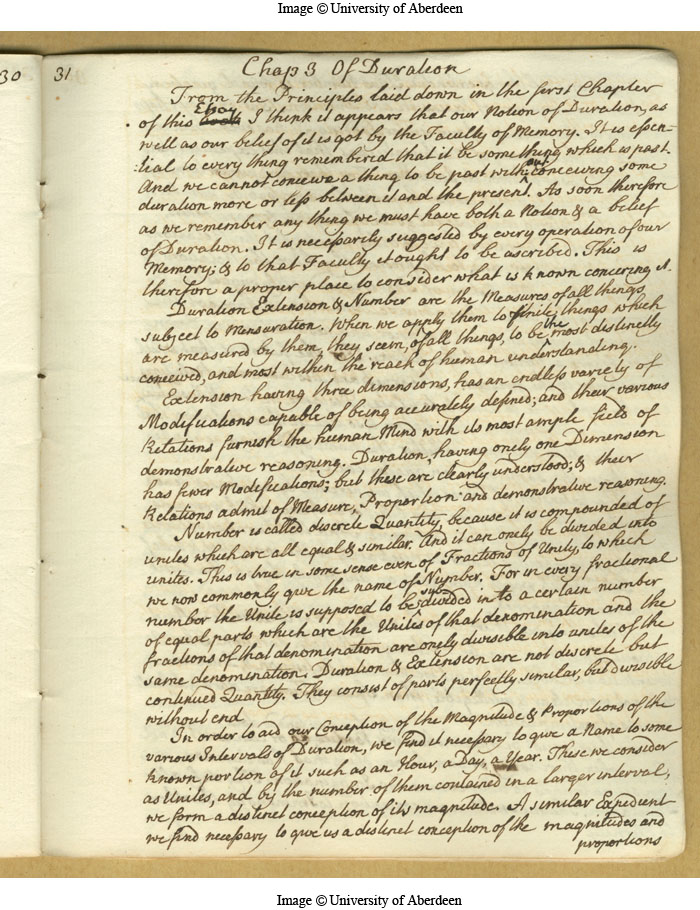 Image © University of Aberdeen
30
31
Chap 3 Of Duration
From the Principles laid down in the first Chapter
Essay
of this book I think it appears that our Notion of Duration, as
well as our belief of it is got by the Faculty of Memory. It is essen-
tial to every thing remembered that it be something which is past.
out
And we cannot conceive a thing to be past with conceiving some
duration more or less between it and the present. As soon therefore
as we remember any thing we must have both a Notion & a belief
of Duration. It is necessarily suggested by every operation of our
Memory; & to that Faculty it ought to be ascribed. This is
therefore a proper place to consider what is known concering it.
Duration Extension & Number are the Measures of all things
subject to Mensuration. When we apply them to finite things which
are measured by them, they seem, of all things, to be the most distinctly
conceived, and most within the reach of human understanding.
Extension having three dimensions, has an endless variety of
Modifications capable of being accurately defined; and their various
Relations furnish the human Mind with its most ample field of
demonstrative reasoning. Duration, having onely one Dimension
has fewer Modifications; but these are clearly understood; & their
Relations admit of Measure, Proportion and demonstrative reasoning.
Number is called discrete Quantity, because it is compounded of
unites which are all equal & similar. And it can onely be divided into
unites. This is true in some sense even of Fractions of Unity, to which
we now commonly give the name of Number. For in every fractional
number the Unite is supposed to be subdivided into a certain number
of equal parts which are the Unites of that denomination and the
fractions of that denomination are onely divisible into unites of the
same denomination. Duration & Extension are not discrete but
continued Quantity. They consist of parts perfectly similar, but divisible
without end
In order to aid our Conception of the Magnitude & Proportions of the
various Intervals of Duration, we find it necessary to give a Name to some
known portion of it such as an Hour, a Day, a Year. These we consider
as Unites, and by the number of them contained in a larger interval,
we form a distinct conception of its magnitude. A similar Expedient
we find necessary to give us a distinct conception of the magnitudes and
proportions
Image © University of Aberdeen